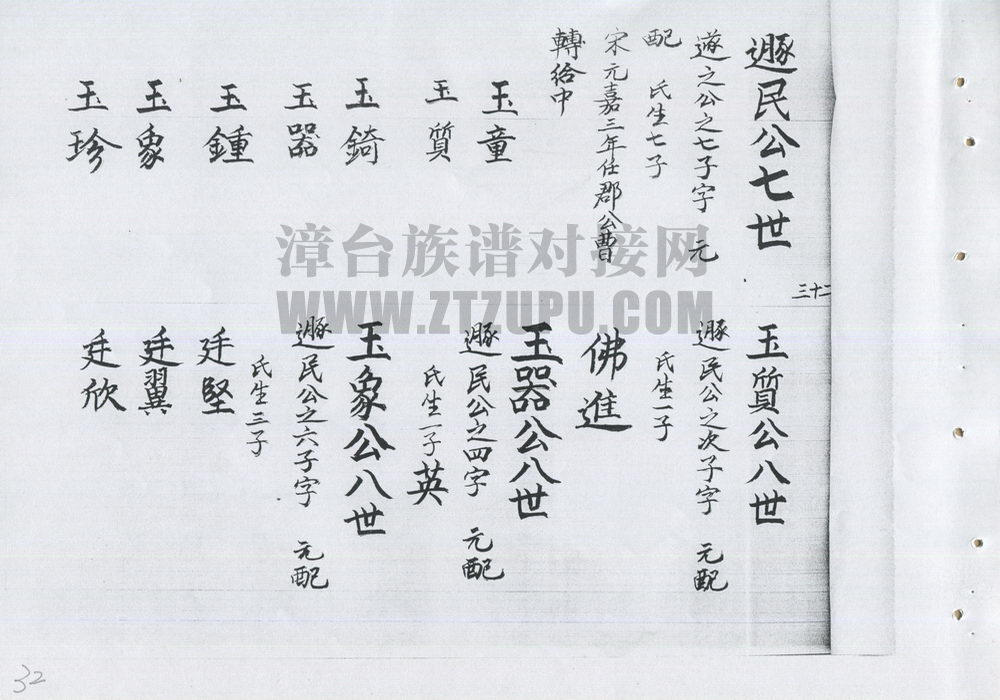 遯民公七世
遂之公之七子字 元
配 氏生七子
宋元嘉三年任郡公曹
轉給中
玉童
玉質
玉錡
玉器
玉鍾
玉象
玉珍
三十二
玉質公八世
遯民公之次子字 元配
氏生一子
佛進
玉器公八世
遯民公之四字 元配
氏生一子 英
玉象公八世
遯民公之六子字 元配
氏生三子
廷堅
廷翼
廷欣
漳台族谱对接网
WWW.ZTZUPU.COM
32